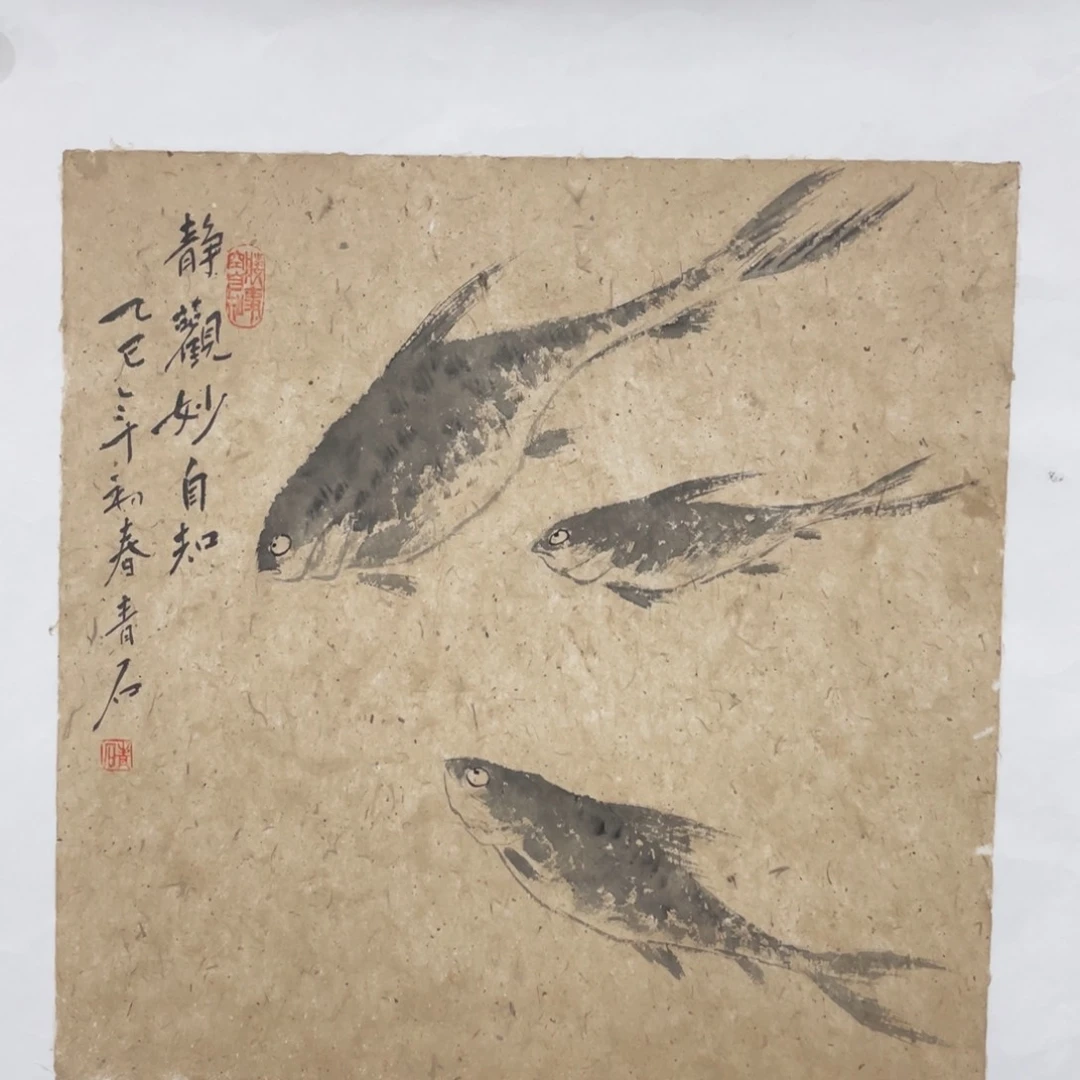 静觀妙自知
乙巳年初春青石
青石